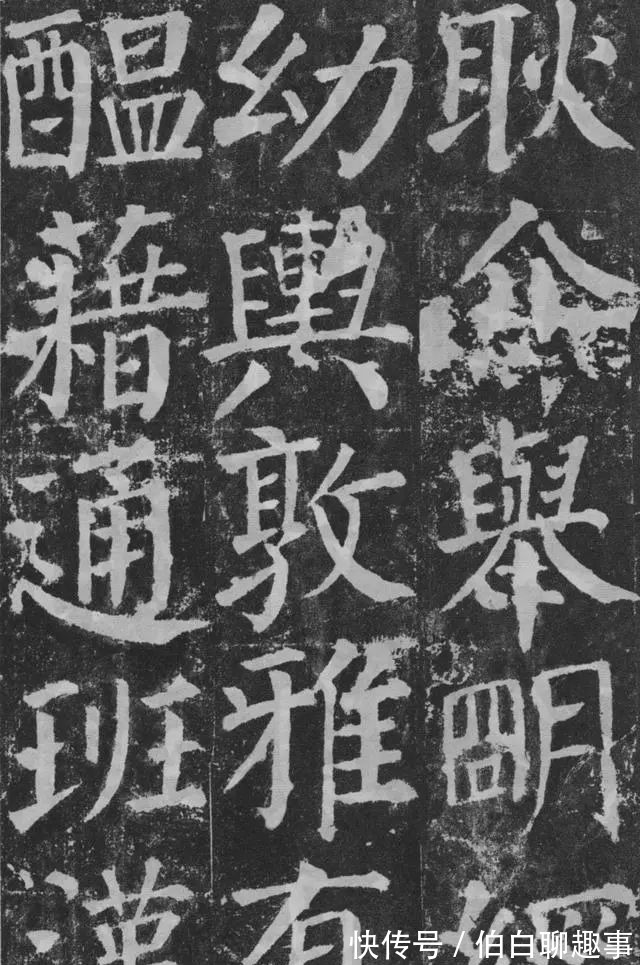 耿介舉朙經
幼輿敦雅有
醞藉通班漢
快传号/伯白聊趣事